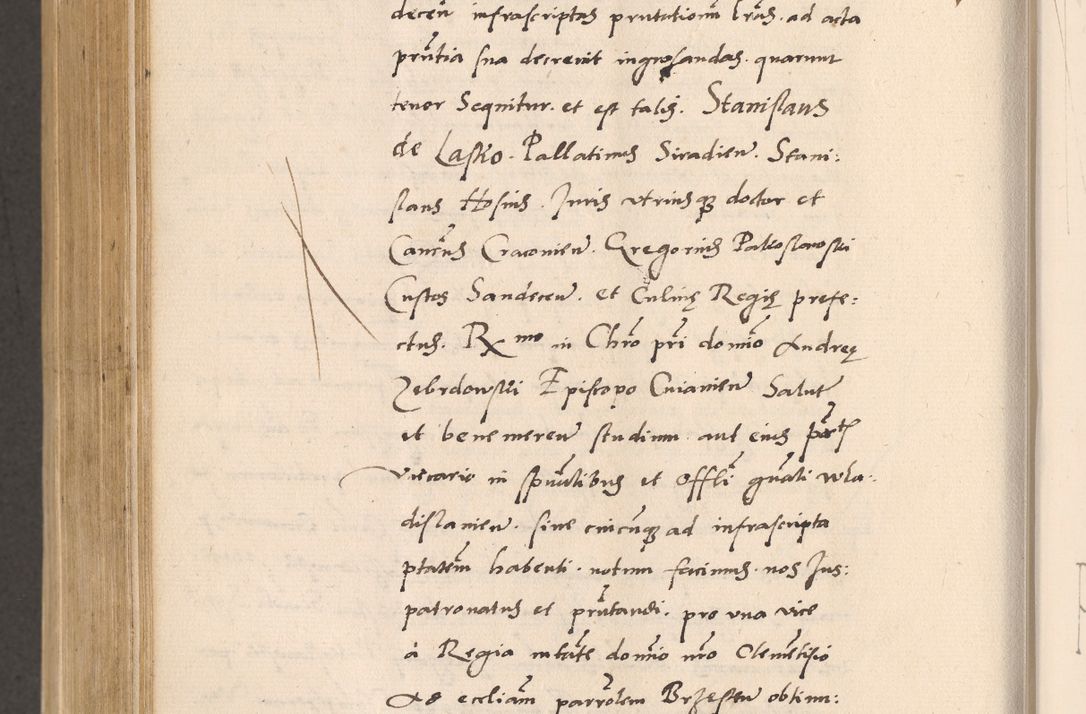 decen infrascriptas pntationum lras. ad acta
pntia sua decrevit ingrosandas. quarum
tenor Sequitur. et est talis. Stanislaus
de Lasko. Pallatinus Siradien. Stani:
slaus Hosius. Juris utriusq doctor et
Cancrus Cracovien. Gregorius
Custos Sandecen. et Culinę Regię prefe:
ctus. Rmo in Chro pri domino Andreę
Zebrdowski Episcopo Cuiavien Salut
et benemeren studium. aut eius
vicario in spualibus et Offli gnali wla:
dislavien. sive cuicunq ad infrascripta
ptatem habenti. notum facimus. nos Jus:
patronatus et pntandi. pro una vice
à Regia mtate domino nro Clementisio
Ad eccliam parrolem Brzesten obtinu: